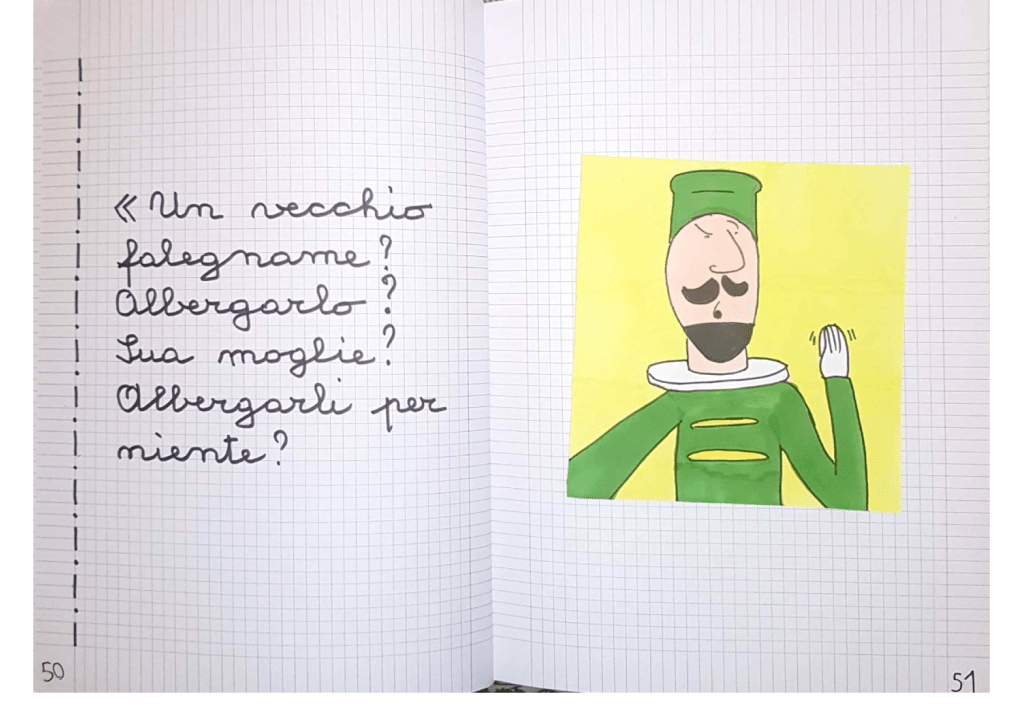 « Un vecchio
falegname?
Albergarlo?
Sua moglie?
Albergarli per
niente?
50
51